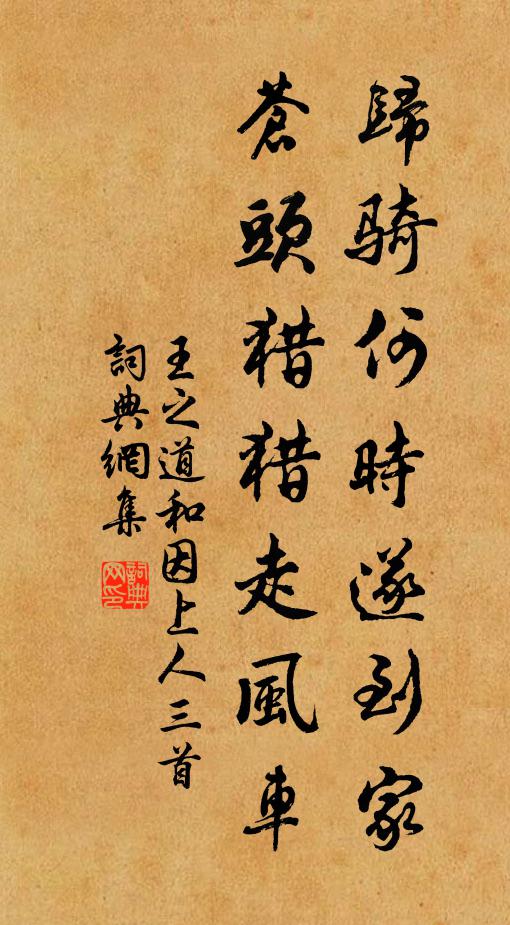 歸騎何時遂到家
蒼頭猎猎走風車
王之道和因上人三首
詞典網集
詞典網印